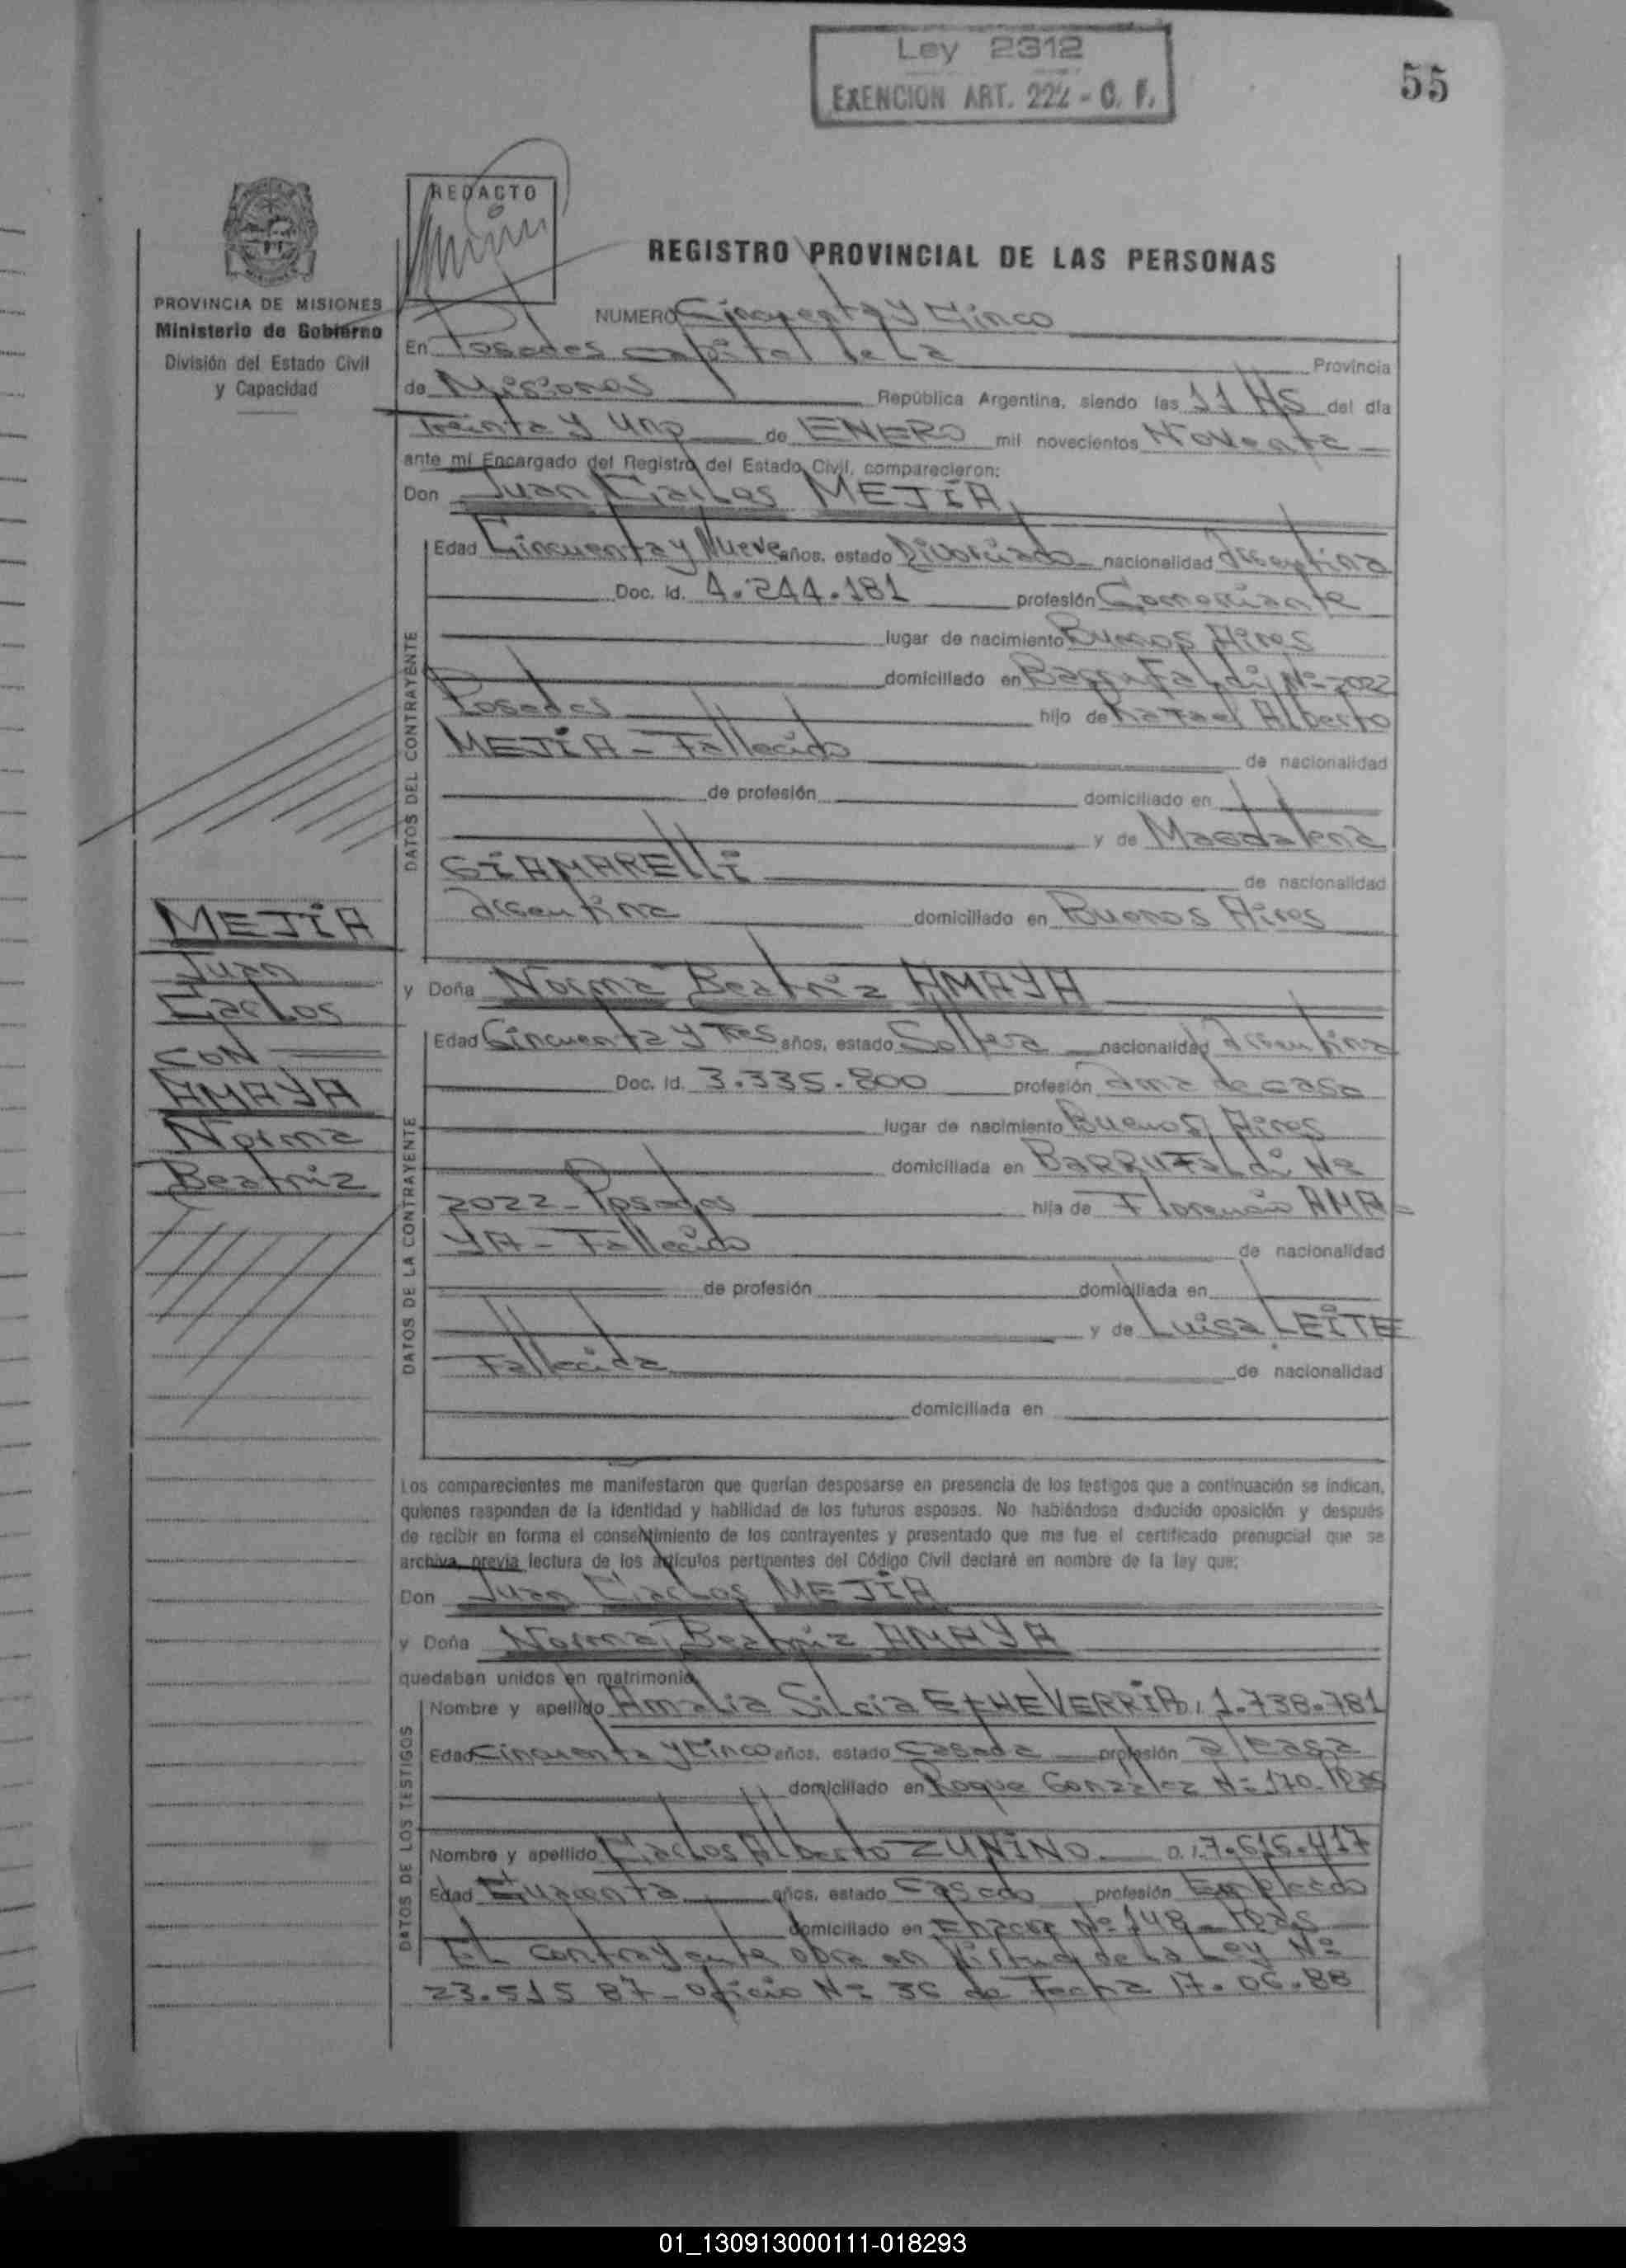 Ley 2312
EXENCION ART. 222 - C. F.
55
REDACTO
REGISTRO PROVINCIAL DE LAS PERSONAS
PROVINCIA DE MISIONES
Ministerio de Gobierno
División del Estado Civil
y Capacidad
NUMERO Cincuenta y Cinco
En Posadas capital de La Provincia
de Misiones República Argentina, siendo las 11 Hs del día
Treinta y Uno de ENERO mil novecientos Noventa
ante mí Encargado del Registro del Estado Civil, comparecieron:
Don Juan Carlos MEJIA
DATOS DEL CONTRAYENTE
Edad Cincuenta y Nueve años, estado Divorciado nacionalidad Argentina
Doc. Id. 4.244.181 profesión Comerciante
lugar de nacimiento Buenos Aires
domiciliado en Barrufaldi Nº 2022
Posadas hijo de Rafael Alberto
MEJIA - Fallecido de nacionalidad
de profesión domiciliado en
y de Magdalena
GIAMARELLI de nacionalidad
Argentina domiciliado en Buenos Aires
MEJIA
Juan
Carlos
CON
AMAYA
Norma
Beatriz
y Doña Norma Beatriz AMAYA
DATOS DE LA CONTRAYENTE
Edad Cincuenta y Tres años, estado Soltera nacionalidad Argentina
Doc. Id. 3.335.800 profesión ama de casa
lugar de nacimiento Buenos Aires
domiciliada en BARRUFALdi Nº
2022 - Posadas hija de Florencio AMA-
YA - Fallecido de nacionalidad
de profesión domiciliada en
y de Luisa LEITE
Fallecida de nacionalidad
domiciliada en
Los comparecientes me manifestaron que querían desposarse en presencia de los testigos que a continuación se indican,
quienes responden de la identidad y habilidad de los futuros esposos. No habiéndose deducido oposición y después
de recibir en forma el consentimiento de los contrayentes y presentado que me fue el certificado prenupcial que se
archiva, previa lectura de los artículos pertinentes del Código Civil declaré en nombre de la ley que:
Don Juan Carlos MEJIA
y Doña Norma Beatriz AMAYA
quedaban unidos en matrimonio
DATOS DE LOS TESTIGOS
Nombre y apellido Amalia Silcia EtHEVERRIA 1.738.781
Edad Cincuenta y Cinco años, estado Casada profesión a/casa
domiciliado en Roque Gonzalez Nº 170
Nombre y apellido Carlos Alberto ZUNINO 7.616.417
Edad Cuarenta años, estado Casado profesión Empleado
domiciliado en Nº 148
EL contrayente obra en Virtud de La Ley Nº
23.515 87 - oficio Nº 36 de Fecha 17.06.88
01_130913000111-018293